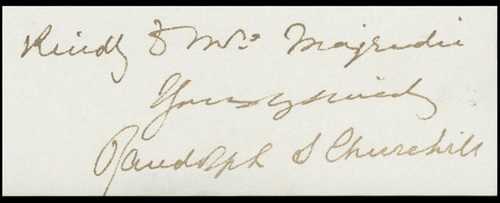 Kindly to Mrs.
Yours sincerely
Randolph S Churchill